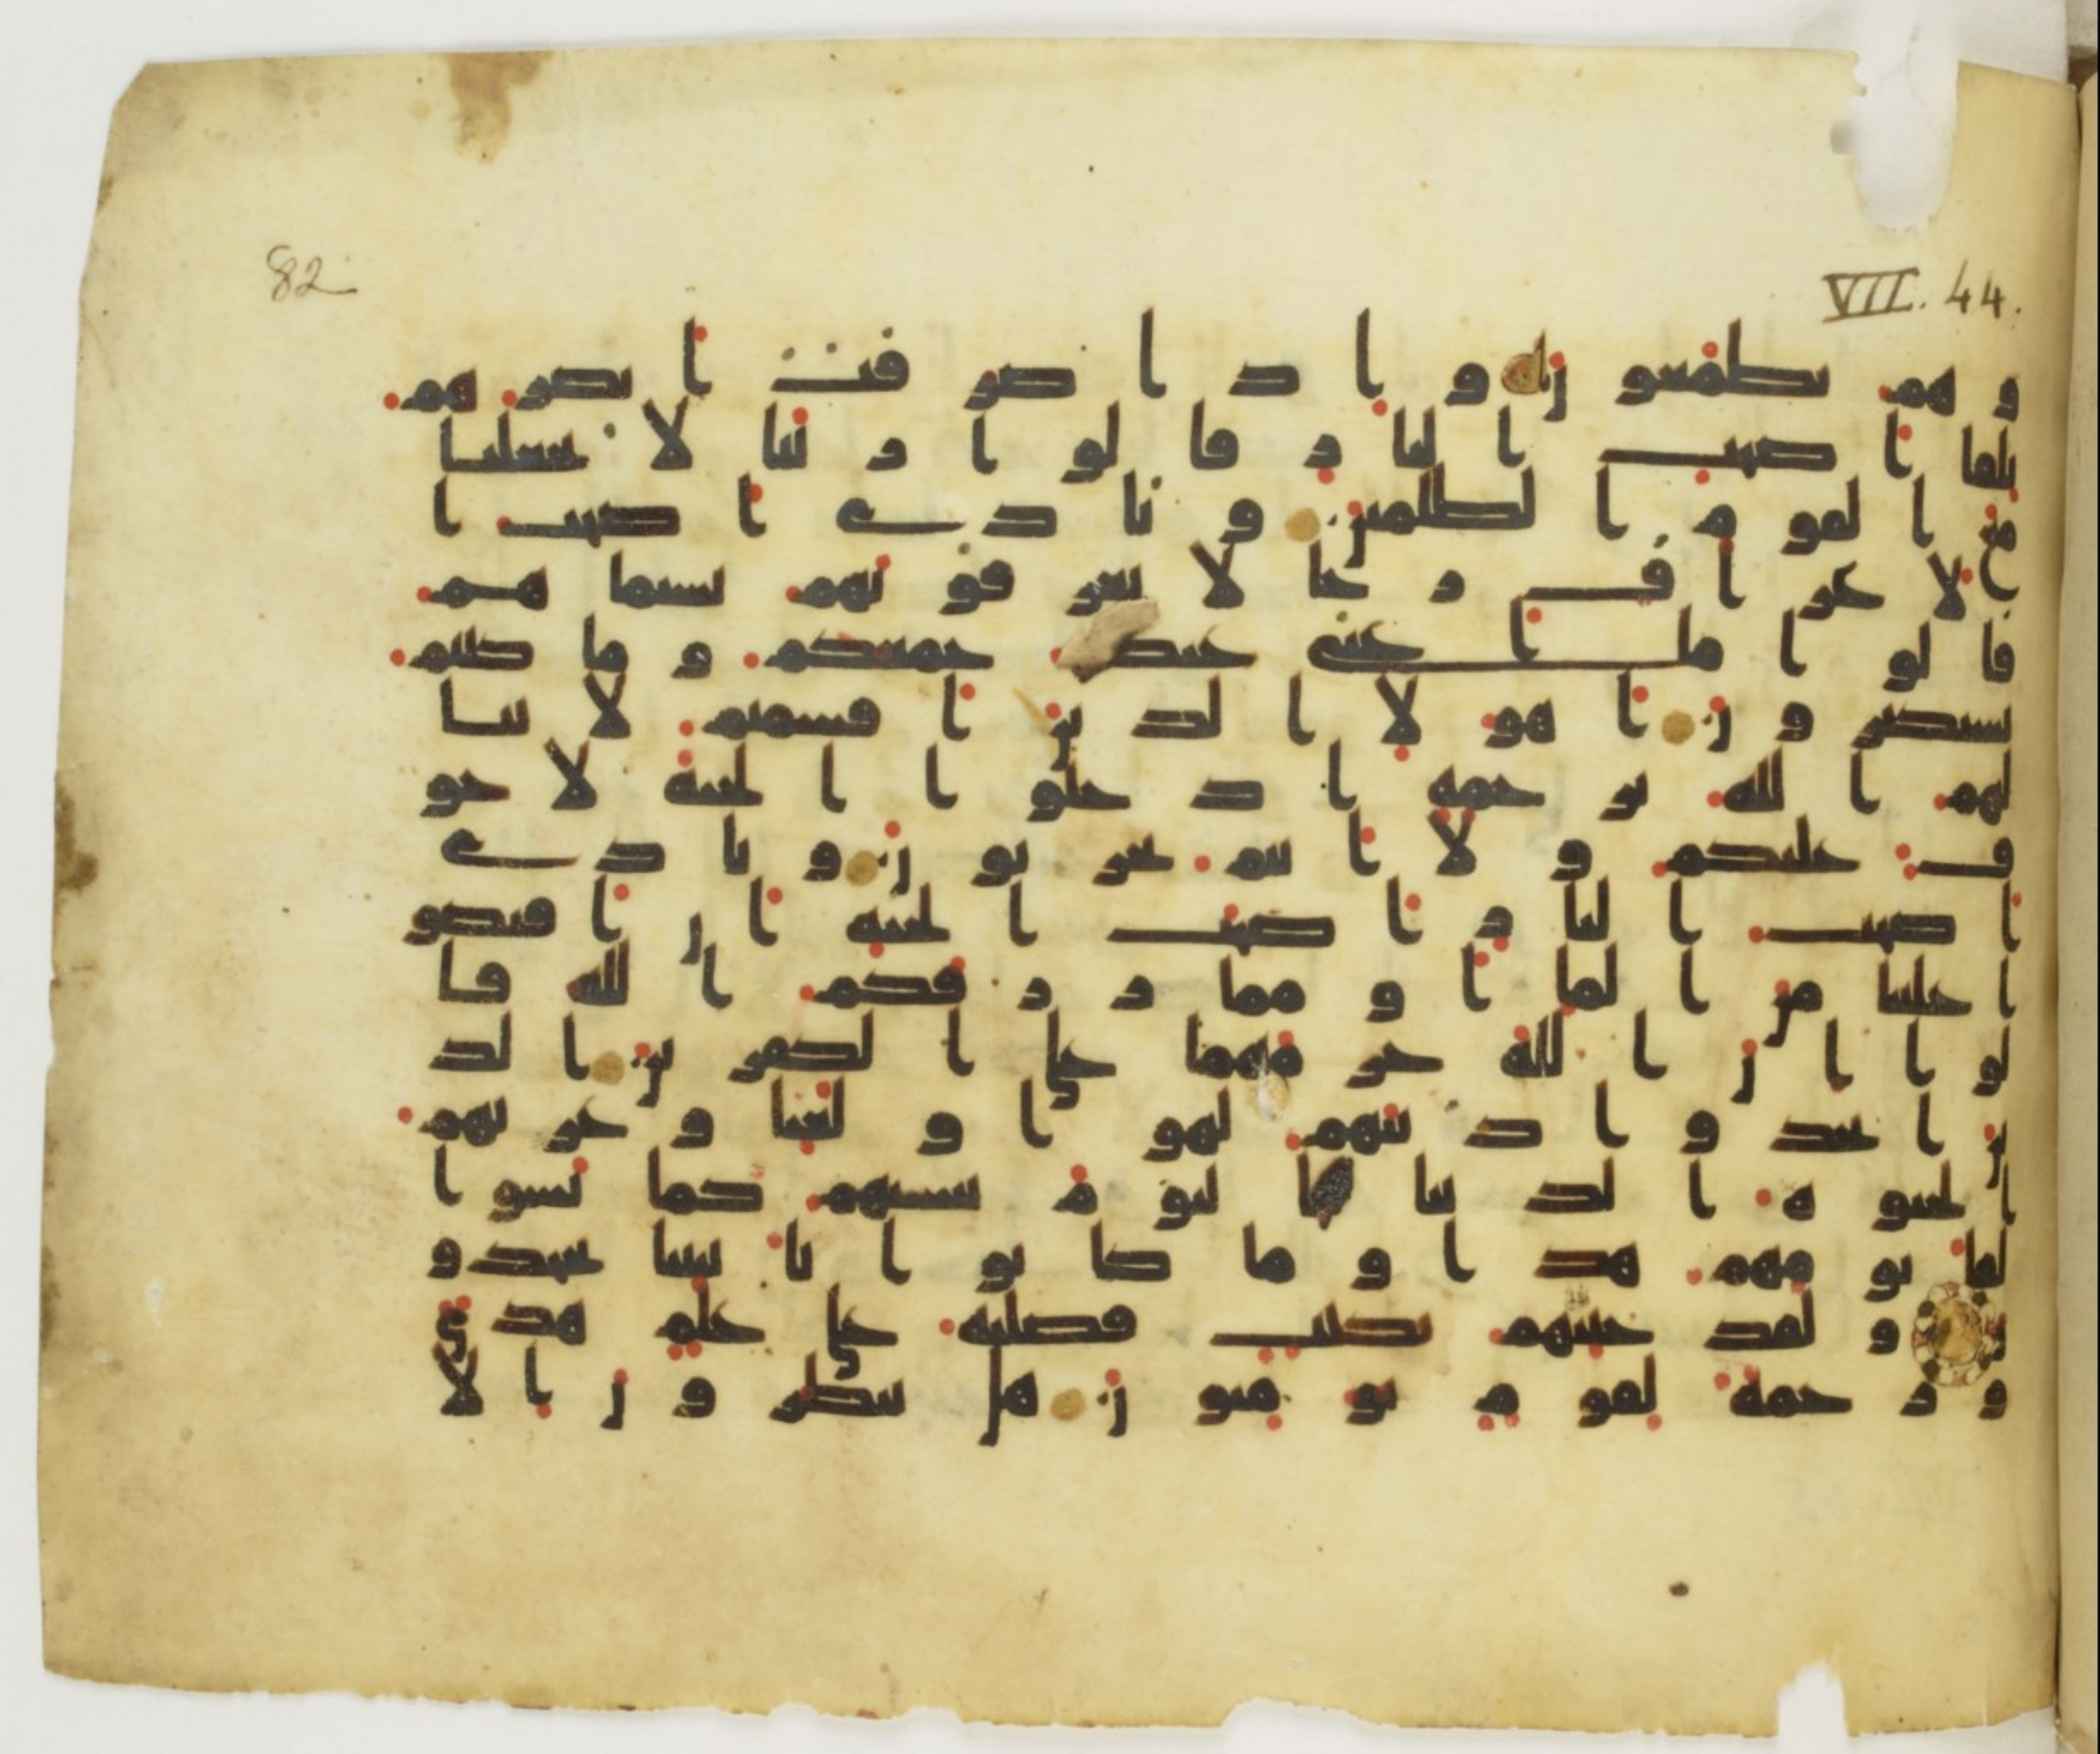 82
VII. 44.
و هم يطمعون و اذا صرفت ابصرهم
تلقا اصحب النار قالوا ربنا لا تجعلنا
مع القوم الظلمين و نادى اصحب ا
لاعراف رجالا يعرفونهم بسيماهم
قالوا ما اغنى عنكم جمعكم و ما كنتم
تستكبرون اهولا الذين اقسمتم لا ينا
لهم الله برحمة ادخلوا الجنة لا خو
ف عليكم و لا انتم تحزنون و نادى
اصحب النار اصحب الجنة ان افيضو
ا علينا من الما او مما رزقكم الله قا
لوا ان الله حرمهما على الكفرين الذ
ين اتخذوا دينهم لهوا و لعبا و غرتهم
الحيوة الدنيا فاليوم ننسيهم كما نسوا
لقا يومهم هذا و ما كانوا بايتنا يجحدو
ن و لقد جئنهم بكتب فصلنه على علم هدى
و رحمة لقوم يومنون هل ينظرون الا